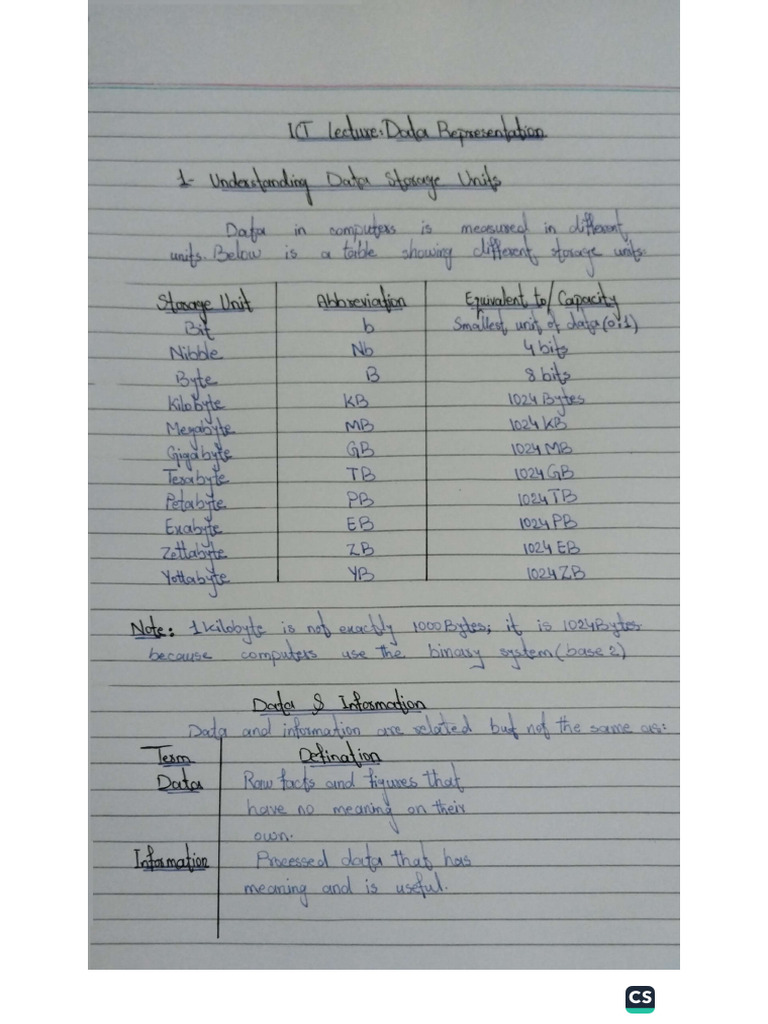 ICT Lecture: Data Representation
1- Understanding Data Storage Units
Data in computers is measured in different
units. Below is a table showing different storage units:
Storage Unit Abbreviation Equivalent to/Capacity
Bit b Smallest unit of data (0:1)
Nibble Nb 4 bits
Byte B 8 bits
Kilobyte KB 1024 Bytes
Megabyte MB 1024 KB
Gigabyte GB 1024 MB
Terabyte TB 1024 GB
Petabyte PB 1024 TB
Exabyte EB 1024 PB
Zettabyte ZB 1024 EB
Yottabyte YB 1024 ZB
Note: 1 Kilobyte is not exactly 1000 Bytes; it is 1024 Bytes
because computers use the binary system (base 2)
Data & Information
Data and information are related but not the same as:
Term Defination
Data Raw facts and figures that
have no meaning on their
own.
Information Processed data that has
meaning and is useful.
CS